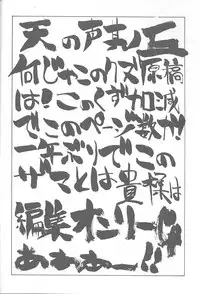 天の声其ノ五
何じゃこのクズ原稿
は!このくずナロン減
でこのページ数か!
一年ぶりでこの
ザマとは貴様は
編集オーリーじゃ
あぁぁー!!